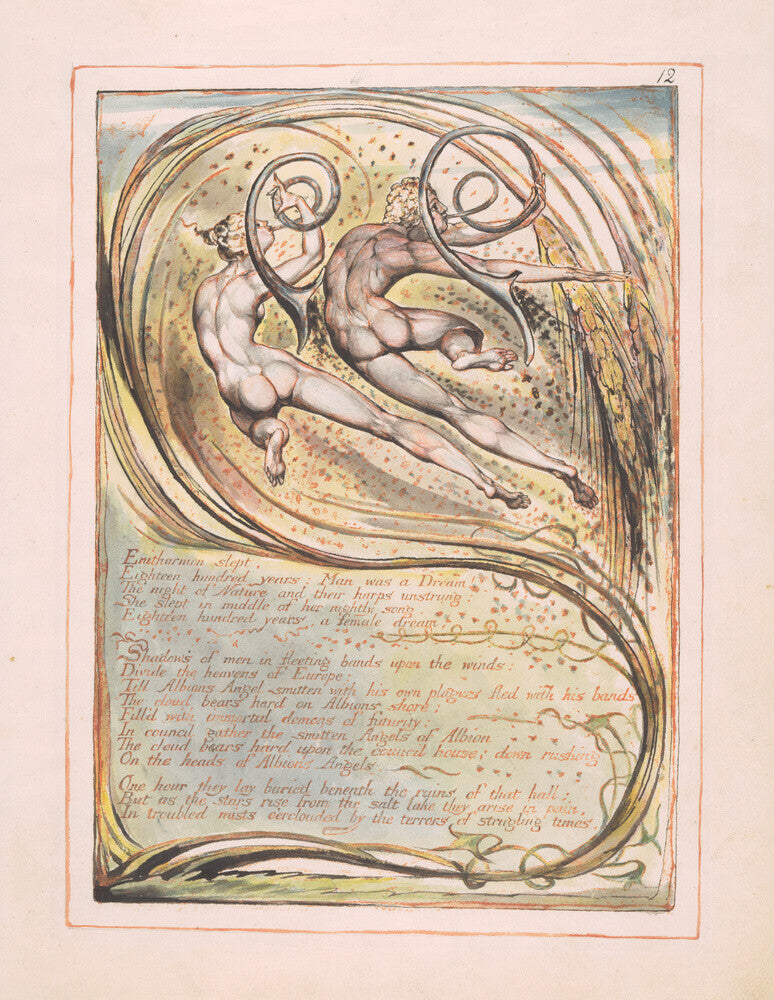 12
Enitharmon slept,
Eighteen hundred years: Man was a Dream!
The night of Nature and their harps unstrung:
She slept in middle of her nightly song,
Eighteen hundred years, a female dream.
Shadows of men in fleeting bands upon the winds:
Divide the heavens of Europe:
Till Albions Angel smitten with his own plagues fled with his bands
The cloud bears hard on Albions shore:
Fill'd with immortal demons of futurity:
In council gather the smitten Angels of Albion
The cloud bears hard upon the council house; down rushing
On the heads of Albions Angels.
One hour they lay buried beneath the ruins of that hall;
But as the stars rise from the salt lake they arise in pain,
In troubled mists oerclouded by the terrors of strugling times.